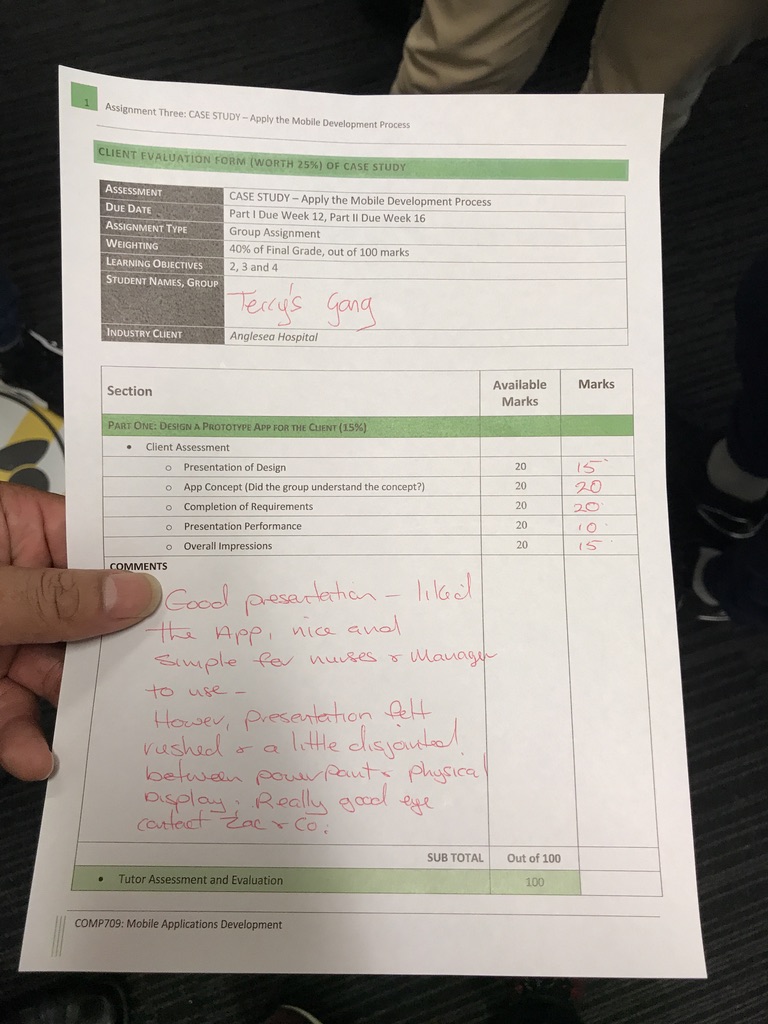 1
Assignment Three: CASE STUDY – Apply the Mobile Development Process
CLIENT EVALUATION FORM (WORTH 25%) OF CASE STUDY
ASSESSMENT CASE STUDY – Apply the Mobile Development Process
DUE DATE Part I Due Week 12, Part II Due Week 16
ASSIGNMENT TYPE Group Assignment
WEIGHTING 40% of Final Grade, out of 100 marks
LEARNING OBJECTIVES 2, 3 and 4
STUDENT NAMES, GROUP Terry's Gang
INDUSTRY CLIENT Anglesea Hospital
Section Available Marks Marks
PART ONE: DESIGN A PROTOTYPE APP FOR THE CLIENT (15%)
• Client Assessment
o Presentation of Design 20 15
o App Concept (Did the group understand the concept?) 20 20
o Completion of Requirements 20 20
o Presentation Performance 20 10
o Overall Impressions 20 15
COMMENTS
Good presentation – liked
the App, nice and
simple for nurses & Manager
to use –
Hower, presentation felt
rushed & a little disjointed
between powerpoint & physical
Display. Really good eye
contact Zac & Co.
SUB TOTAL Out of 100
• Tutor Assessment and Evaluation 100
COMP709: Mobile Applications Development